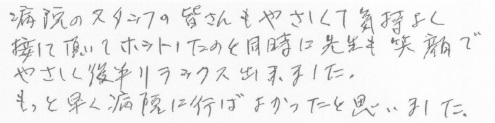 病院のスタッフの皆さんもやさしくて気持よく
接して頂いてホットしたのと同時に先生も笑顔で
やさしく後半リラックス出来ました。
もっと早く病院に行ばよかったと思いました。